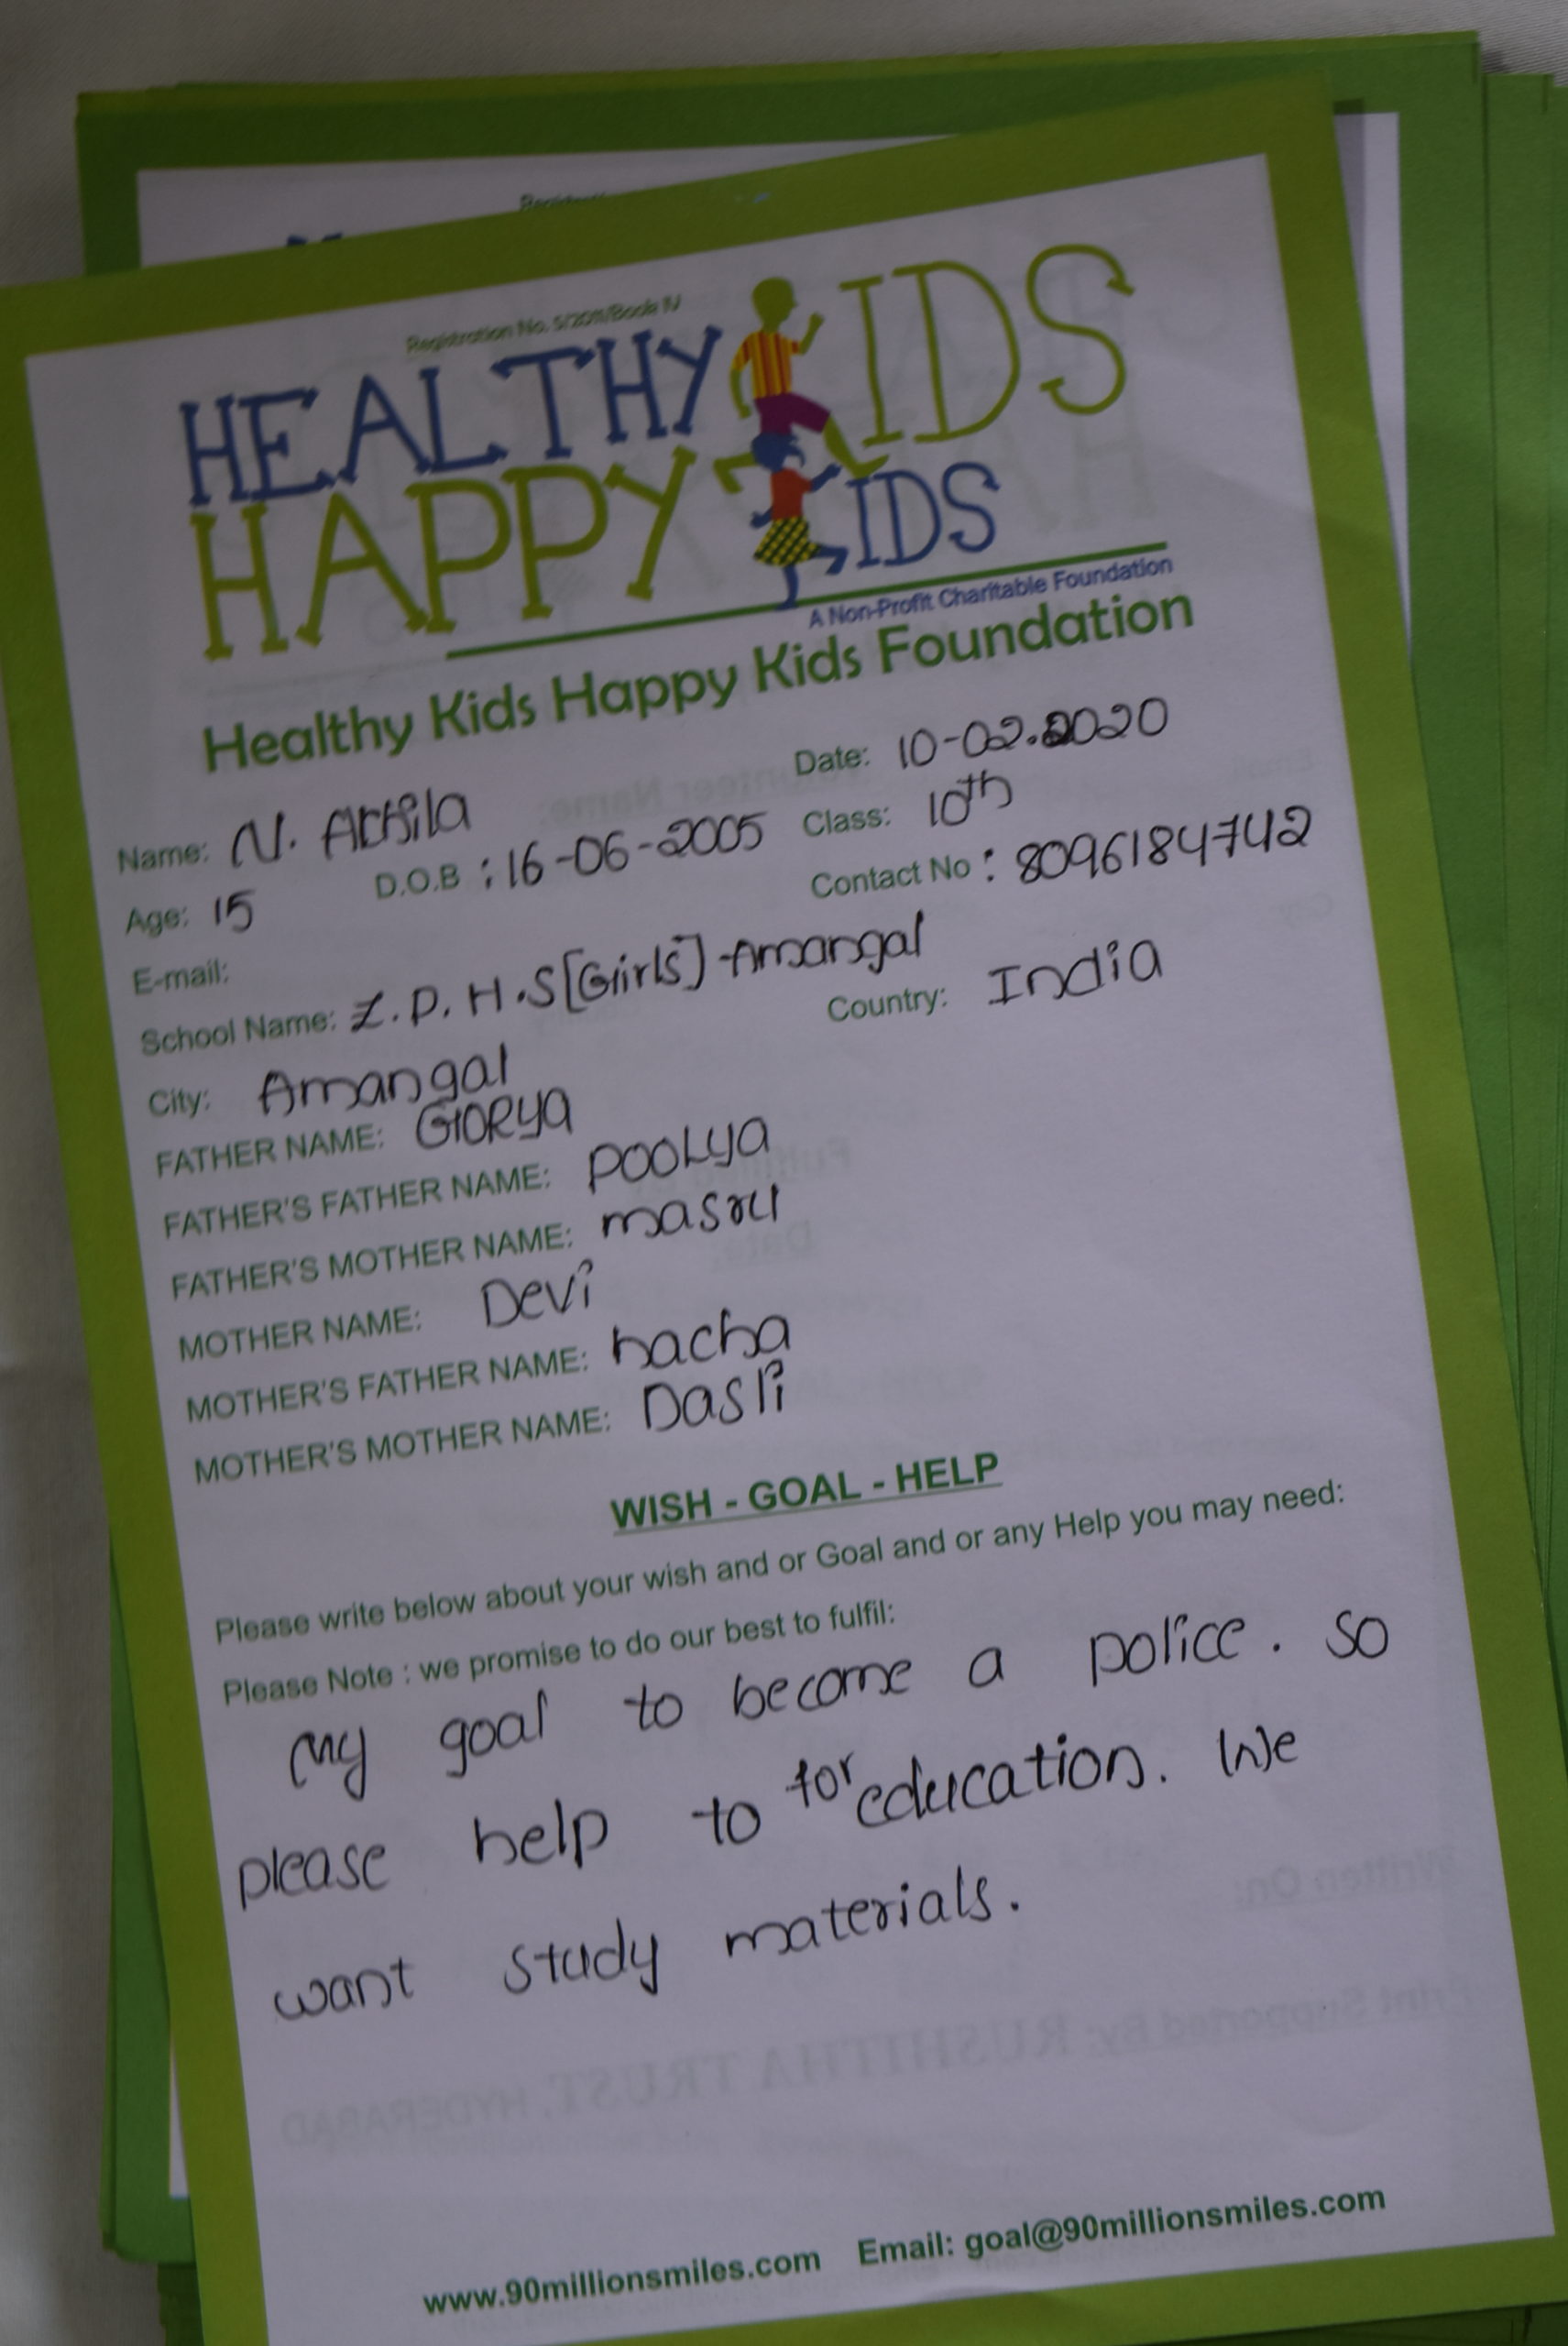 Registration No. 5/2011/Book IV
HEALTHY KIDS
HAPPY KIDS
A Non-Profit Charitable Foundation
Healthy Kids Happy Kids Foundation
Date: 10-02.2020
Name: N.
Class: 10th
Age: 15 D.O.B : 16-06-2005
Contact No : 8096184742
E-mail:
School Name: Z.P.H.S[Girls]-Amangal
Country: India
City: Amangal
FATHER NAME: GORYA
FATHER'S FATHER NAME: POOLya
FATHER'S MOTHER NAME: masru
MOTHER NAME: Devi
MOTHER'S FATHER NAME: hacha
MOTHER'S MOTHER NAME: Dasli
WISH - GOAL - HELP
Please write below about your wish and or Goal and or any Help you may need:
Please Note : we promise to do our best to fulfil:
My goal to become a police. so
please help to for education. We
want study materials.
www.90millionsmiles.com Email: goal@90millionsmiles.com